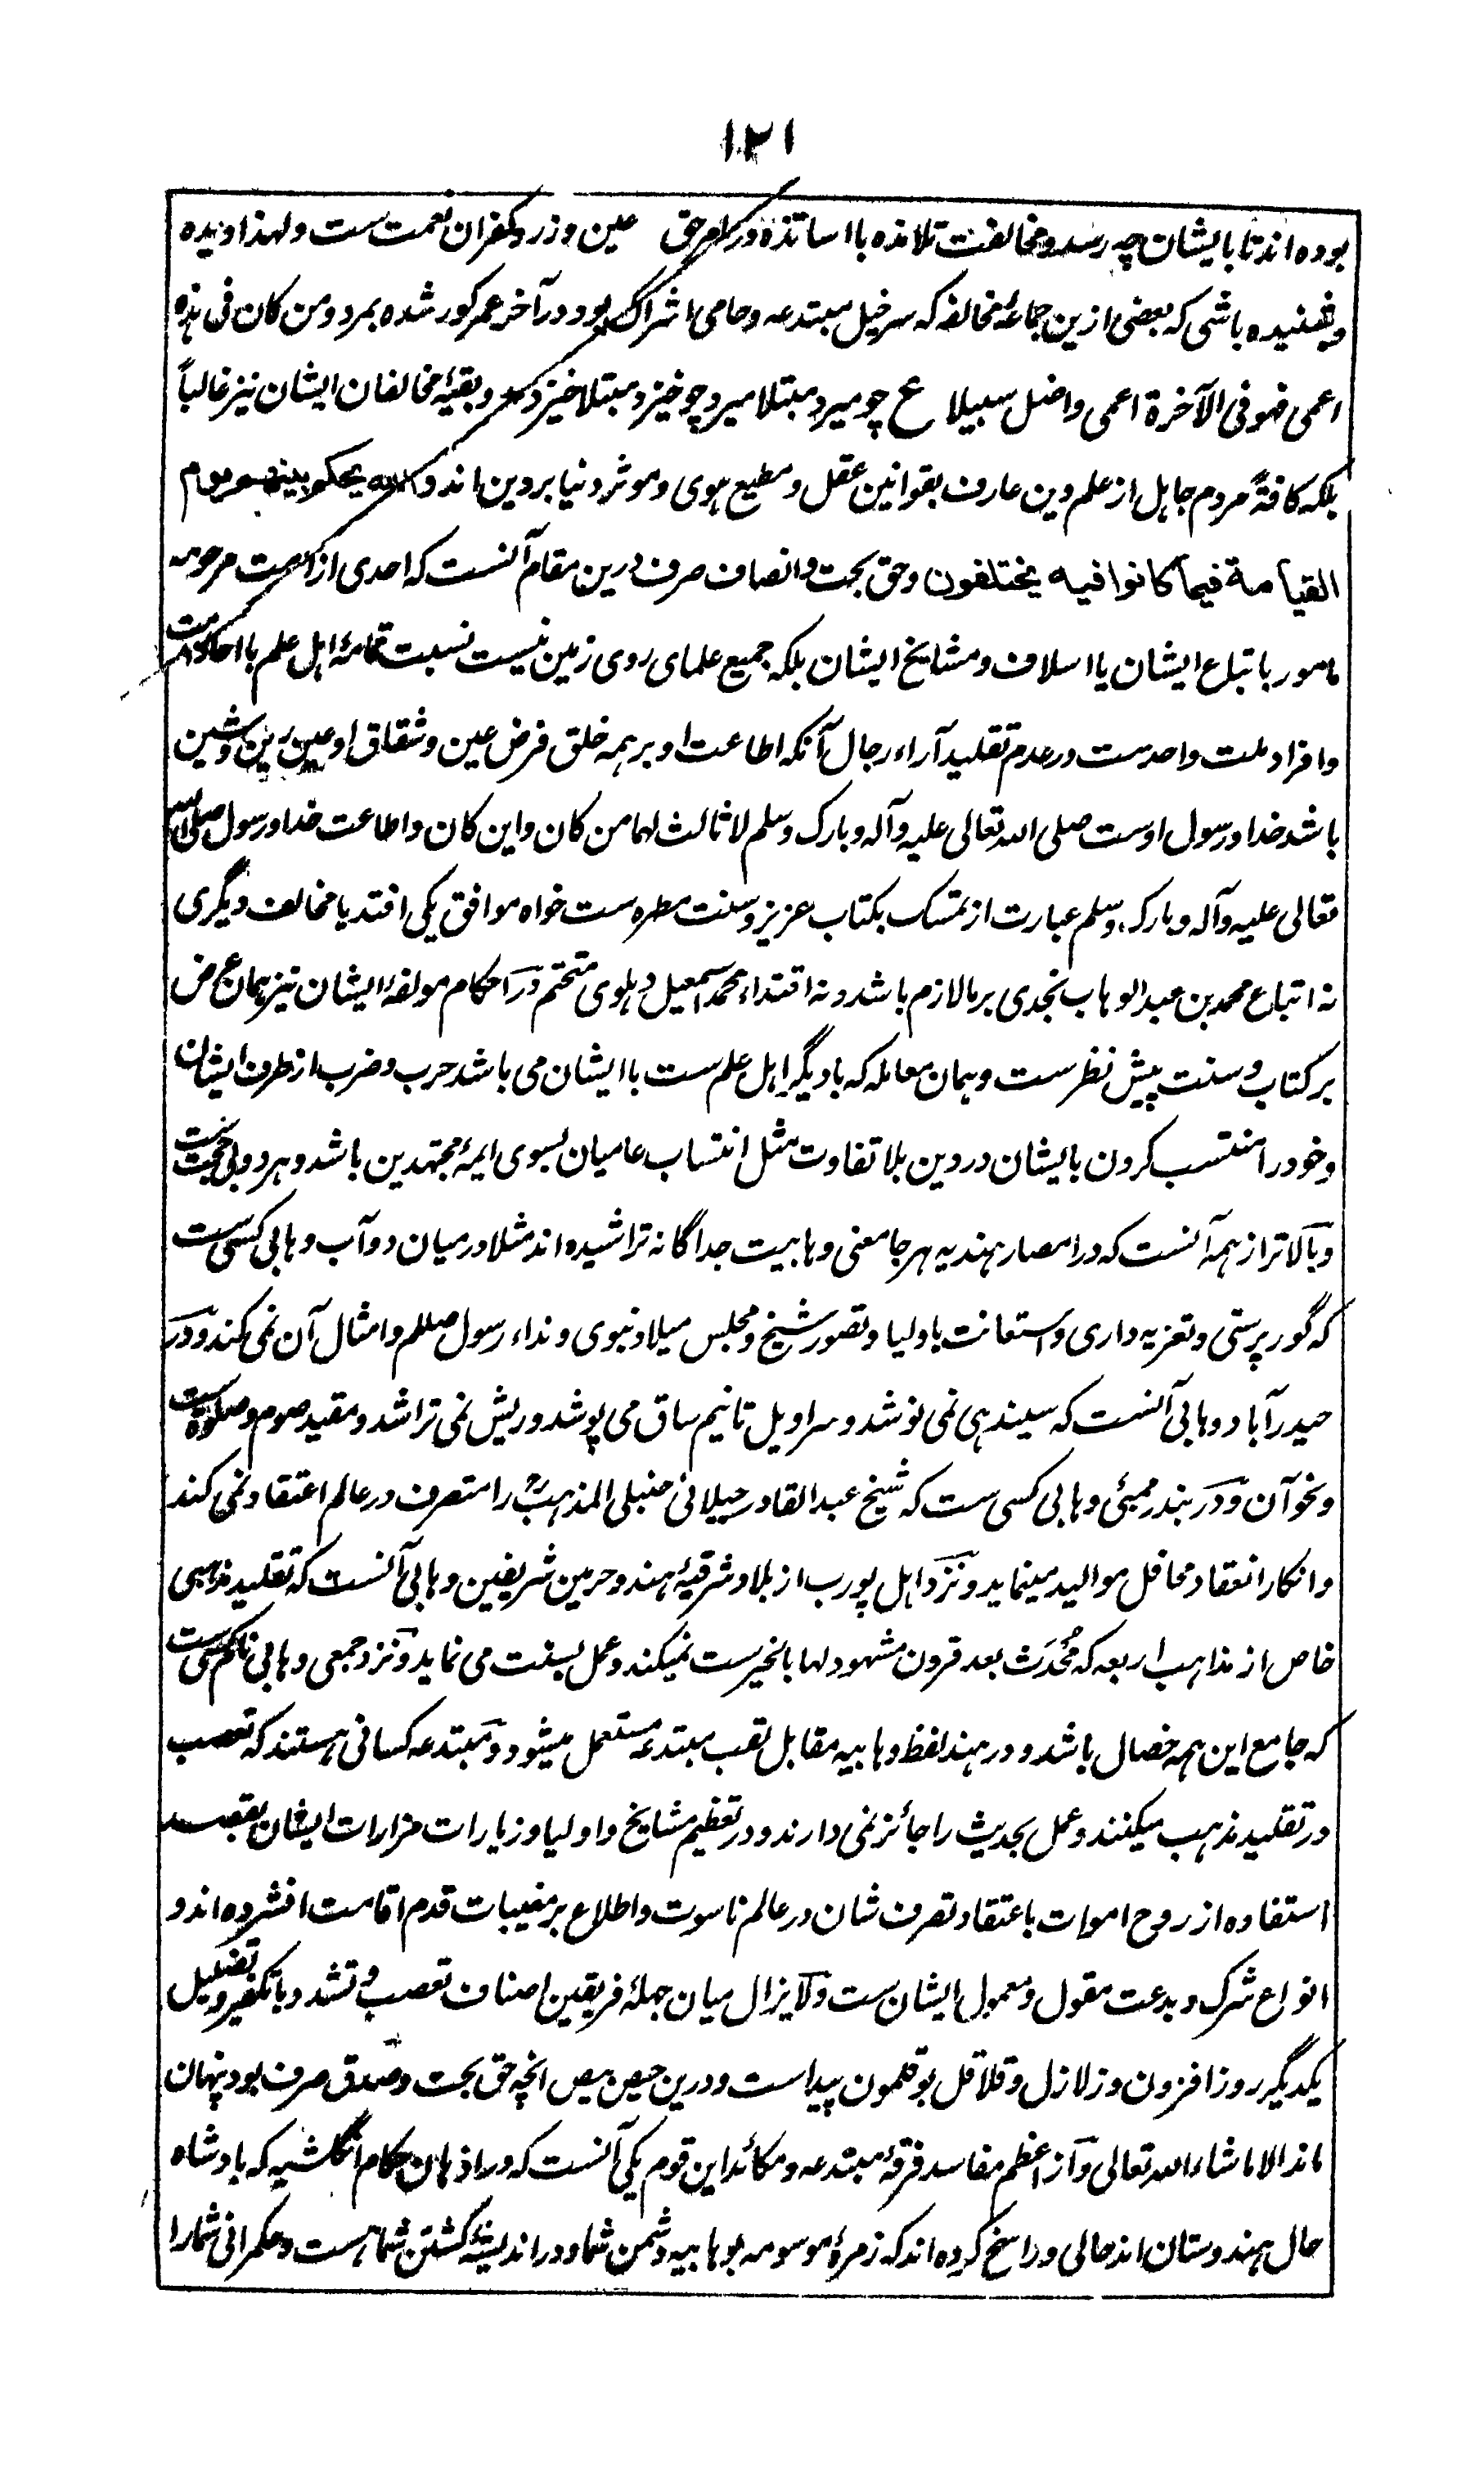 ١٢١
بوده اند تا بایشان چه رسد و مخالفت تلامذه با اساتذه در امر حق عین وزر و کفران نعمت ست و لهذا دیده
و شنیده باشی که بعضی ازین جماعهٔ مخالفه که سرخیل مبتدعه و حامی اشراک بود در آخر عمر کور شده بمرد و من کان فی هذه
اعمی فهو فی الآخرة اعمی و اضل سبیلا ع چو میرد مبتلا میرد چو خیزد مبتلا خیزد و بقیهٔ مخالفان ایشان نیز غالباً
بلکه کافهٔ مردم جاهل از علم دین عارف بقوانین عقل و مطیع هوی و موثر دنیا بر دین اند و الله یحکم بینهم یوم
القیامة فیما کانوا فیه یختلفون و حق بحت و انصاف صرف درین مقام آنست که احدی از امت مرحومه
مامور باتباع ایشان یا اسلاف و مشایخ ایشان بلکه جمیع علمای روی زمین نیست نسبت تمامهٔ اهل علم با احاد امت
و افراد ملت واحدست در عدم تقلید آراء رجال آنکه اطاعت او بر همه خلق فرض عین و شقاق او عین رین و شین
باشد خدا و رسول اوست صلی الله تعالی علیه و آله و بارک و سلم لا ثالث لهما من کان و این کان و اطاعت خدا و رسول صلی الله
تعالی علیه و آله و بارک و سلم عبارت از تمسک بکتاب عزیز و سنت مطهره ست خواه موافق یکی افتد یا مخالف دیگری
نه اتباع محمد بن عبدالوهاب نجدی بر ما لازم باشد و نه اقتداء محمد اسمعیل دهلوی متحتم در احکام مولفهٔ ایشان نیز همان عرض
بر کتاب و سنت پیش نظرست و همان معامله که با دیگر اهل علم ست با ایشان می باشد حرب و ضرب از طرف ایشان
و خود را منتسب کردن بایشان در دین بلا تفاوت مثل انتساب عامیان بسوی ایمهٔ مجتهدین باشد و هر دو بی حجت ست
و بالاتر از همه آنست که در امصار هندیه هر جا معنی وهابیت جداگانه تراشیده اند مثلا در میان دوآب وهابی کسی ست
که گور پرستی و تعزیه داری و استعانت باولیا و تصور شیخ و مجلس میلاد نبوی و نداء رسول صللم و امثال آن نمی کند و در
حیدرآباد وهابی آنست که سیندهی نمی نوشد و سراویل تا نیم ساق می پوشد و ریش نمی تراشد و مقید صوم و صلوٰة ست
و نحو آن و در بندر ممبئی وهابی کسی ست که شیخ عبدالقادر جیلانی حنبلی المذهب را متصرف در عالم اعتقاد نمی کند
و انکار انعقاد محافل موالید مینماید و نزد اهل پورب از بلاد شرقیهٔ هند و حرمین شریفین وهابی آنست که تقلید مذهبی
خاص از مذاهب اربعه که مُحدَث بعد قرون مشهود لها بالخیرست نمیکند و عمل بسنت می نماید و نزد جمعی وهابی نام کسی ست
که جامع این همه خصال باشد و در هند لفظ وهابیه مقابل لقب مبتدعه مستعمل میشود و مبتدعه کسانی هستند که تعصب
در تقلید مذهب میکنند و عمل بحدیث را جائز نمی دارند و در تعظیم مشایخ و اولیا و زیارات مزارات ایشان بقصد
استفاده از روح اموات باعتقاد تصرف شان در عالم ناسوت و اطلاع بر مغیبات قدم اقامت افشرده اند و
انواع شرک و بدعت مقول و معمول ایشان ست و لا یزال میان جملهٔ فریقین اصناف تعصب و تشدد با تکفیر و تضلیل
یکدیگر روز افزون و زلازل و قلاقل بوقلمون پیداست و درین حیص بیص انچه حق بحت و صدق صرف بود پنهان
ماند الا ما شاء الله تعالی و از اعظم مفاسد فرقهٔ مبتدعه و مکائد این قوم یکی آنست که در اذهان حکام انگلشیه که بادشاه
حال هندوستان اند حالی و راسخ کرده اند که زمرهٔ موسومه بوهابیه دشمن شما و در اندیشهٔ کشتن شماست و حکمرانی شما را